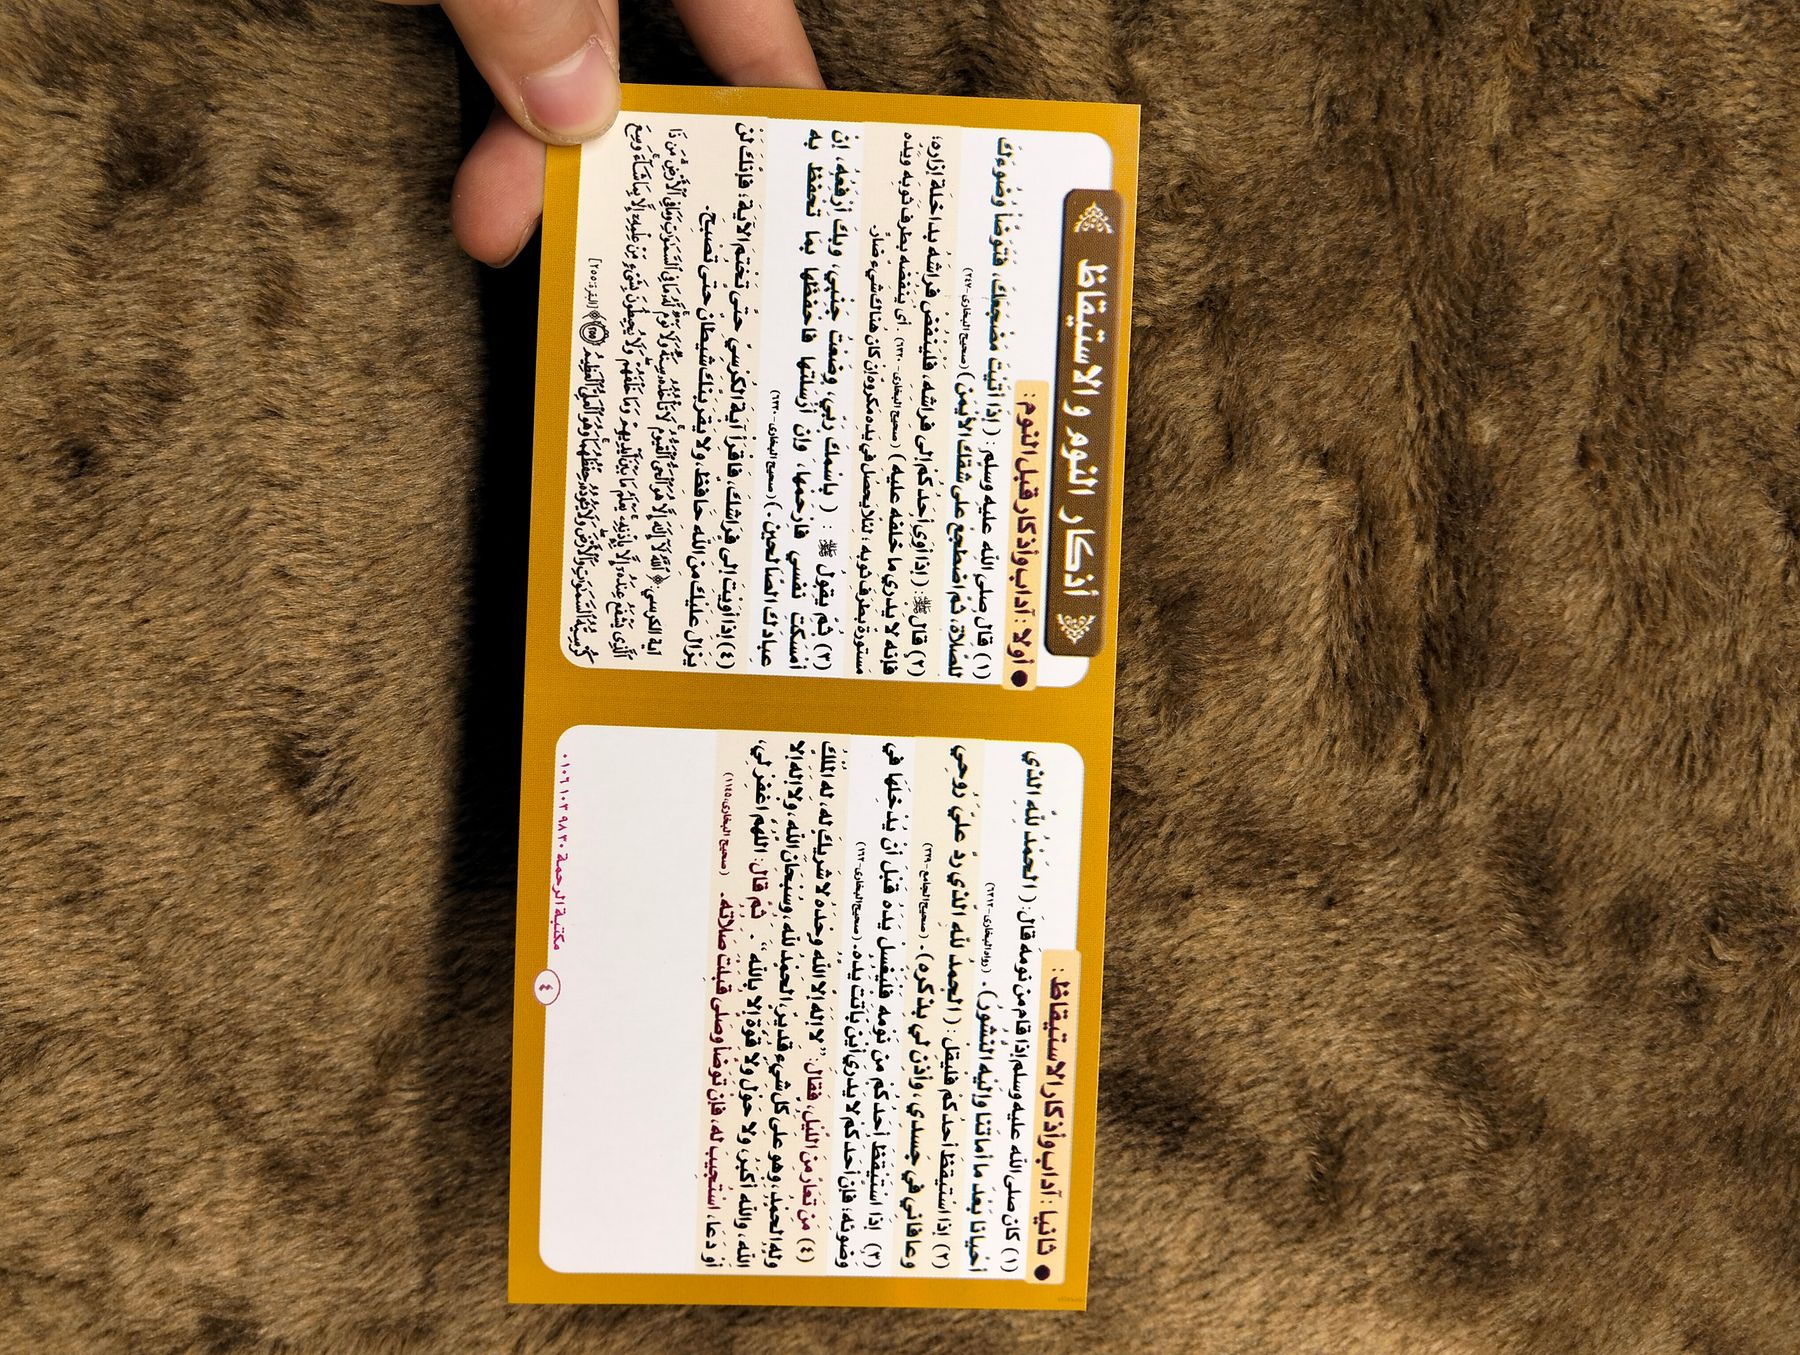 أذكار النوم والاستيقاظ
● أولا : آداب وأذكار قبل النوم :
(١) قال صلى الله عليه وسلم : ( إِذَا أَتَيْتَ مَضْجَعَكَ، فَتَوَضَّأْ وُضُوءَكَ
للصَّلَاةِ، ثُمَّ اضْطَجِعْ عَلَى شِقِّكَ الأَيْمَنِ ) (صحيح البخارى-٢٤٧)
(٢) قال ﷺ: ( إِذَا أَوَى أَحَدُكُمْ إِلَى فِرَاشِهِ، فَلْيَنْفُضْ فِرَاشَهُ بِدَاخِلَةِ إِزَارِهِ،
فَإِنَّهُ لا يَدْرِي مَا خَلَفَهُ عَلَيْهِ ) (صحيح البخارى - ٦٣٢٠) . أى ينفضه بطرف ثوبه ويده
مستورة بطرف ثوبه ؛ لئلا يحصل في يده مكروه إن كان هناك شيء ضار .
(٣) ثُمَّ يَقُولُ ﷺ : ( بِاسْمِكَ رَبِّي، وَضَعْتُ جَنْبِي، وَبِكَ أَرْفَعُهُ، إِنْ
أَمْسَكْتَ نَفْسِي فَارْحَمْهَا، وَإِنْ أَرْسَلْتَهَا فَاحْفَظْهَا بِمَا تَحْفَظُ بِهِ
عِبَادَكَ الصَّالِحِينَ. ) (صحيح البخارى - ٦٣٢٠)
(٤) إِذَا أَوَيْتَ إِلَى فِرَاشِكَ، فَاقْرَأْ آيَةَ الكُرْسِيِّ حَتَّى تَخْتِمَ الآيَةَ ؛ فَإِنَّكَ لَنْ
يَزَالَ عَلَيْكَ مِنَ اللَّهِ حَافِظٌ، وَلَا يَقْرَبَنَّكَ شَيْطَانٌ حَتَّى تُصْبِحَ.
اية الكرسي:﴿ ٱللَّهُ لَآ إِلَٰهَ إِلَّا هُوَ ٱلْحَىُّ ٱلْقَيُّومُ لَا تَأْخُذُهُۥ سِنَةٌ وَلَا نَوْمٌ لَّهُۥ مَا فِى ٱلسَّمَٰوَٰتِ وَمَا فِى ٱلْأَرْضِ مَن ذَا
ٱلَّذِى يَشْفَعُ عِندَهُۥٓ إِلَّا بِإِذْنِهِۦ يَعْلَمُ مَا بَيْنَ أَيْدِيهِمْ وَمَا خَلْفَهُمْ وَلَا يُحِيطُونَ بِشَىْءٍ مِّنْ عِلْمِهِۦٓ إِلَّا بِمَا شَآءَ وَسِعَ
كُرْسِيُّهُ ٱلسَّمَٰوَٰتِ وَٱلْأَرْضَ وَلَا يَـُٔودُهُۥ حِفْظُهُمَا وَهُوَ ٱلْعَلِىُّ ٱلْعَظِيمُ ٢٥٥ ﴾ [البقرة:٢٥٥]
● ثانيا : آداب وأذكار الاستيقاظ :
(١) كان صلى الله عليه وسلم إِذَا قَامَ مِنْ نَوْمِهِ قَالَ: ( الحَمْدُ لِلَّهِ الذي
أَحْيَانَا بَعْدَ مَا أَمَاتَنَا وَإِلَيْهِ النُّشُورُ) . (رواه البخارى-٦٣١٢)
(٢) إِذَا اسْتَيْقَظَ أَحَدُكُمْ فَلْيَقُلْ : ( الحَمْدُ لِلَّهِ الذي رَدَّ عَلَيَّ رُوحِي
وَعَافَانِي فِي جَسَدِي ، وَأَذِنَ لِي بِذِكْرِهِ). (صحيح الجامع-٣٢٩)
(٣) إِذَا اسْتَيْقَظَ أَحَدُكُمْ مِنْ نَوْمِهِ فَلْيَغْسِلْ يَدَهُ قَبْلَ أَنْ يُدْخِلَهَا فِي
وَضُوئِهِ؛ فَإِنَّ أَحَدَكُمْ لا يَدْرِي أَيْنَ بَاتَتْ يَدُهُ. (صحيح البخارى-١٦٢)
(٤) مَنْ تَعَارَّ مِنَ اللَّيْلِ، فَقَالَ: " لا إِلَهَ إِلَّا اللَّهُ وَحْدَهُ لا شَرِيكَ لَهُ، لَهُ المُلْكُ
وَلَهُ الحَمْدُ، وَهُوَ عَلَى كُلِّ شَيْءٍ قَدِيرٌ، الحَمْدُ لِلَّهِ، وَسُبْحَانَ اللَّهِ، وَلا إِلَهَ إِلَّا
اللَّهُ، وَاللَّهُ أَكْبَرُ، وَلا حَوْلَ وَلا قُوَّةَ إِلَّا بِاللَّهِ " . ثُمَّ قَالَ: اللَّهُمَّ اغْفِرْ لِي،
أَوْ دَعَا، اسْتُجِيبَ لَهُ، فَإِنْ تَوَضَّأَ وَصَلَّى قُبِلَتْ صَلَاتُهُ. (صحيح البخارى ١١٤٥)
٤ مكتبة الرحمة ٠١٠٦١٠٢٩٨٣٠